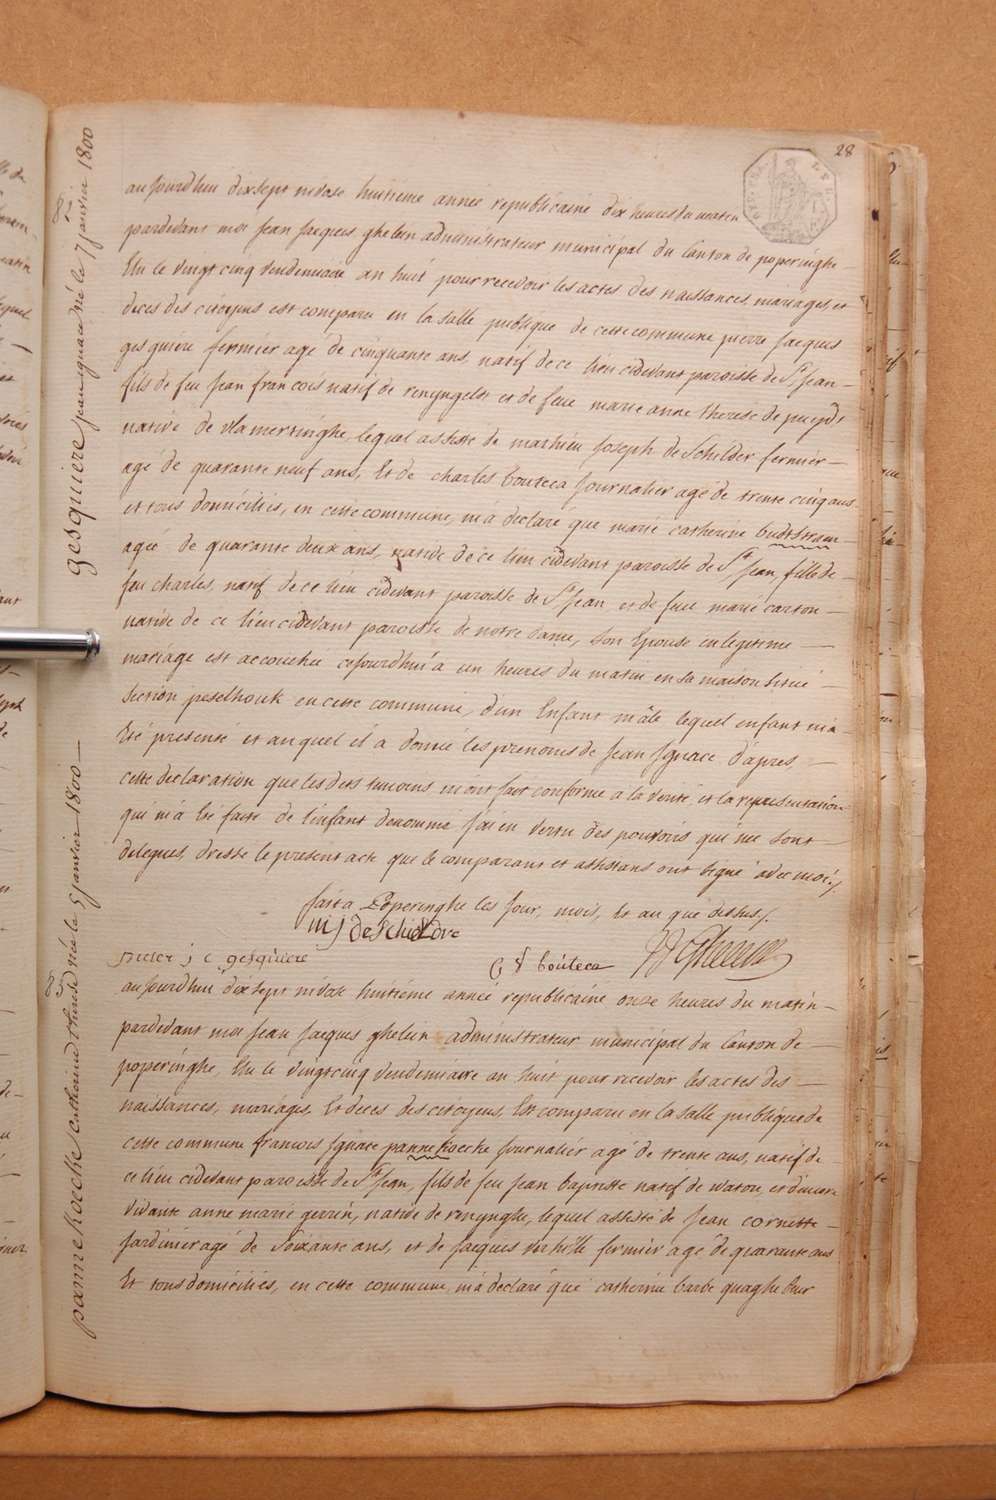 28
aujourdhui dixsept nivose huitieme année républicaine dix heures du matin
pardevant moi jean jacques ghelein administrateur municipal du Canton de poperinghe
Elu le vingtcinq vendemiaire an huit pour recevoir les actes des naissances, mariages, et
deces des citoyens est comparu en la salle publique de cette commune pierre jacques
gesquiere fermier agé de cinquante ans, natif de ce lieu cidevant paroisse de St jean
fils de feu jean francois natif de renyngelst et de feue marie anne therese de puydt
native de vlamertinghe, lequel assisté de mathieu joseph de Schilder fermier
agé de quarante neuf ans, Et de charles bouteca journalier agé de trente cinq ans
et tous domiciliés, en cette commune, m'a declaré que marie catherine
ageé de quarante deux ans, native de ce lieu cidevant paroisse de St jean, fille de
feu charles, natif de ce lieu cidevant paroisse de St jean et de feue marie carton
native de ce lieu cidevant paroisse de notre dame, son Epouse en legitime
mariage est accouchée cejourdhui a un heures du matin en sa maison situé
Section peselhouk en cette commune, d'un Enfant mâle lequel enfant m'a
Eté presenté et auquel il a donné les prenoms de jean jgnace d'apres
cette declaration que les dits temoins m'ont fait conforme a la verité, et la representation
qui m'a Eté faite de l'enfant denommé j'ai en vertu des pouvoirs qui me sont
delegués, dressé le present acte que le comparant et assistans ont signé avec moi
fait a Poperinghe les jour, mois, Et an que dessus
m j de Schildre
pieter j c gesquiere
C F bouteca
JJ Ghelein
aujourdhui dixsept nivose huitiéme année républicaine onze heures du matin
pardevant moi jean jacques ghelein administrateur municipal du Canton de
poperinghe, Elu le vingtcinq vendemiaire an huit pour recevoir les actes des
naissances, mariages, Et deces des citoyens, Est comparu en la salle publique de
cette commune francois jgnace pannekoecke journaliér agé de trente ans, natif de
ce lieu cidevant paroisse de St jean, fils de feu jean baptiste natif de watou, et d'encore
vivante anne marie gevrin, native de renynghe, lequel assisté de jean cornette
jardiniér agé de soixante ans, et de jacques fermier agé de quarante ans
Et tous domiciliés, en cette commune, m'a declaré que catherine barbe quaghebeur
gesquiere jean ignace né le 7 janvier 1800
pannekoecke catherine therese née le 5 janvier 1800